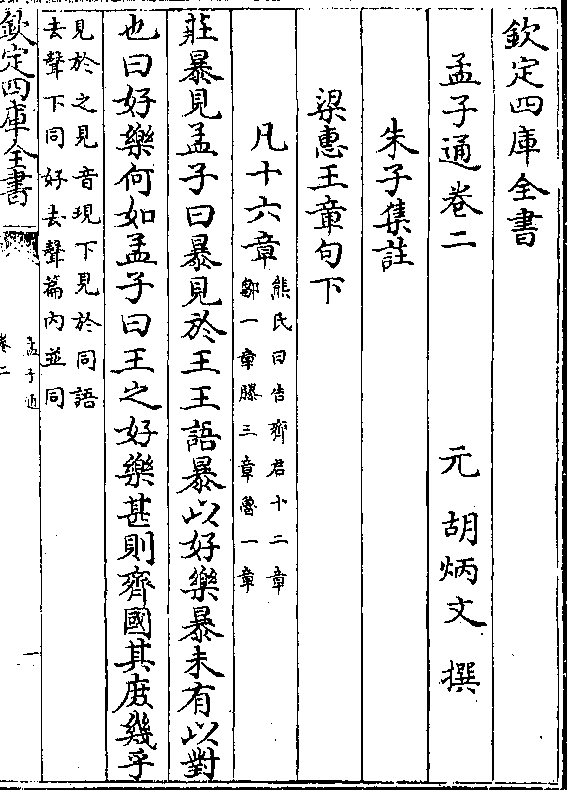 欽定四庫全書
孟子通卷二
元 胡炳文 撰
朱子集註
梁惠王章句下
凡十六章
熊氏曰告齊君十二章
鄒一章滕三章魯一章
莊暴見孟子曰暴見於王王語暴以好樂暴未有以對
也曰好樂何如孟子曰王之好樂甚則齊國其庶幾乎
見於之見音現下見於同語
去聲下同好去聲篇內並同
欽定四庫全書
孟子通
卷二
一